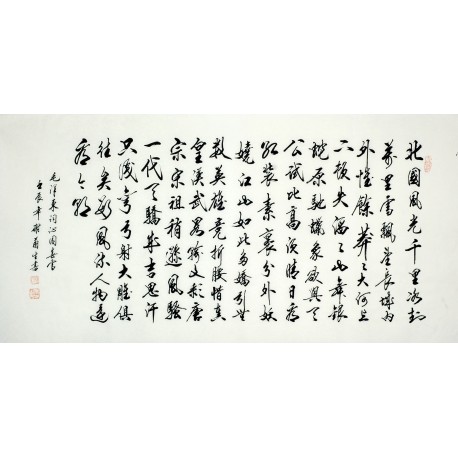 北國風光千里冰封
萬里雪飄望長城内
外惟餘莽〻大河上
下頓失滔〻山舞銀
蛇原馳蠟象欲與天
公試比高須晴日看
紅裝素裹分外妖
嬈江山如此多嬌引無
數英雄競折腰惜秦
皇漢武略輸文彩唐
宗宋祖稍遜風騷
一代天驕成吉思汗
只識彎弓射大雕俱
往矣數風流人物還
看今朝
毛澤東詞沁園春雪
壬辰年 書